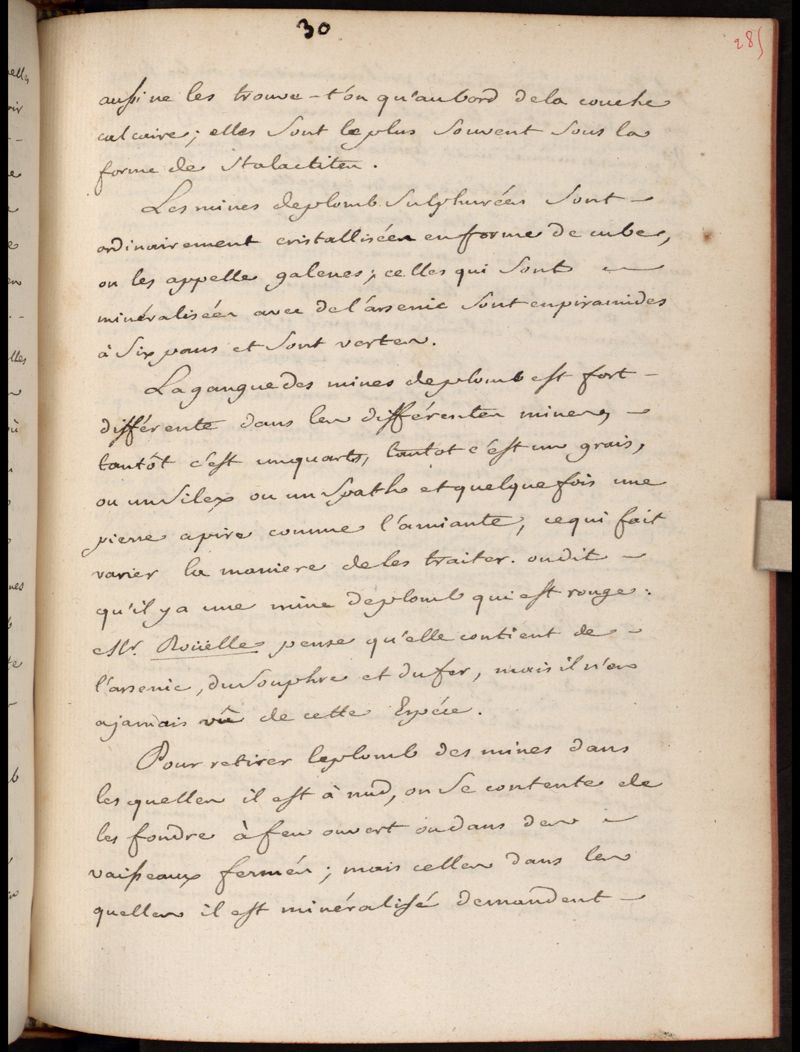 30
285
aussi ne les trouve-t'on qu'au bord de la couche
calcaire; elles Sont le plus Souvent Sous la
forme de Stalactites.
Les mines de plomb Sulphurées Sont -
ordinairement cristallisées en forme de cubes,
on les appelle galenes; celles qui Sont -
minéralisées avec de l'arsenic Sont en piramides
à Six pans et Sont vertes.
La gangue des mines de plomb est fort -
différente dans les différentes mines, -
tantôt c'est un quarts, tantot c'est un grais,
ou un Silex ou un Spath et quelque fois une
pierre apire comme l'amiante, ce qui fait
varier la maniere de les traiter. on dit -
qu'il y a une mine de plomb qui est rouge:
Mr. Roüelle pense qu'elle contient de -
l'arsenic, du Souphre et du fer, mais il n'en
a jamais vû de cette Espéce.
Pour retirer le plomb des mines dans
les quelles il est à nud, on Se contente de
les fondre à feu ouvert ou dans des -
vaisseaux fermés; mais celles dans les
quelles il est minéralisé demandent -